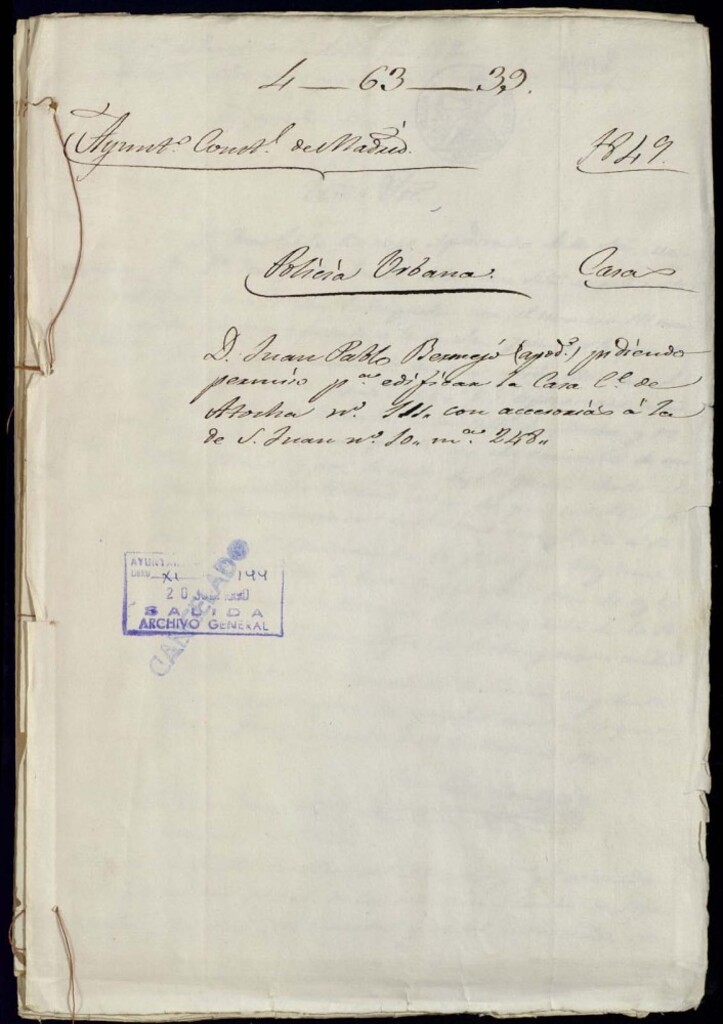 4 — 63 — 39.
Ayunt.º Const.l de Madrid. 1849.
Policia Urbana. Casas
D. Juan Pablo Bermejo (apod.º) pidiendo
permiso p.ª edificar la Casa C.e de
Atocha nº. 111. con accesorias á la
de S. Juan nº. 10. m.na 248.
AYUNTA
XI 144
20 1990
SALIDA
ARCHIVO GENERAL
CANCELADO